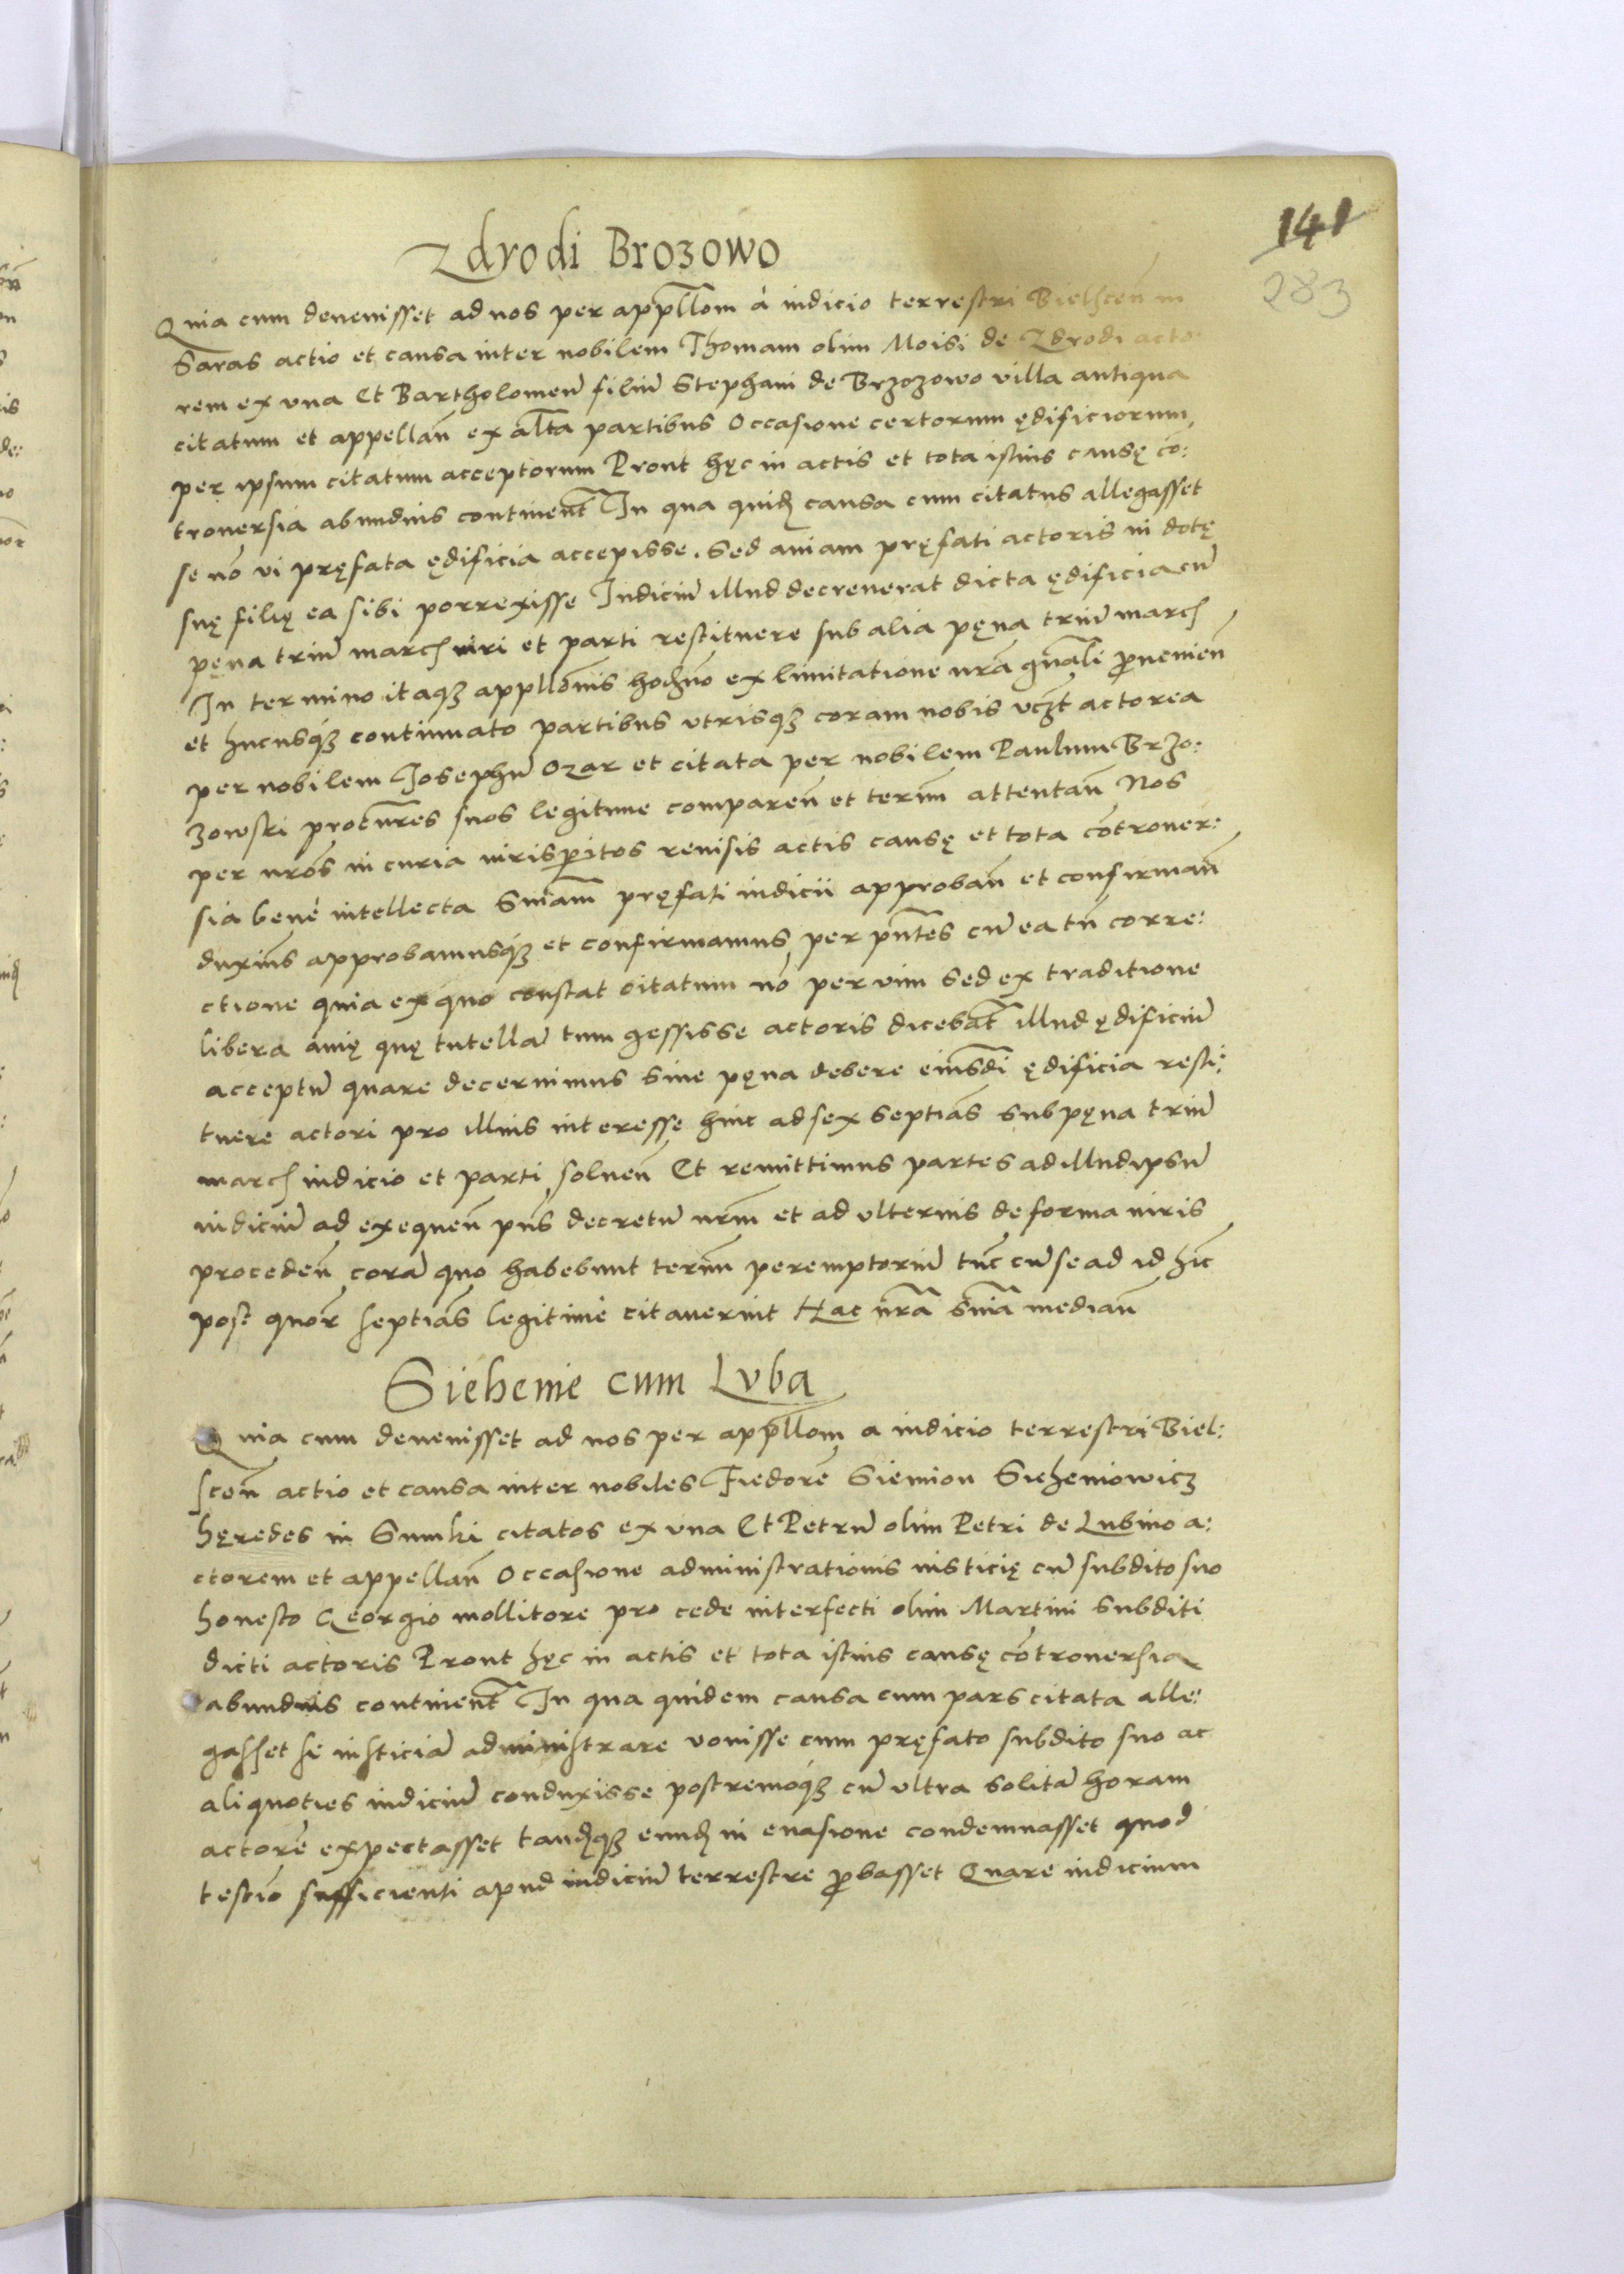 141
283
Zdrodi Brozowo
Quia cum devenisset ad nos per appłłom à iudicio terrestri Bielscen̄ in
Saras actio et causa inter nobilem Thomam olim Moisi de Zdrodi acto:
rem ex una Et Bartholomeū filiū Stephani de Brzozowo villa antiqua
citatum et appellan̄ ex alt̄a partibus Occasione certorum ędificiorum
per ipsum citatum acceptorum Prout hęc in actis et tota istius causę cō:
troversia abundius continent̄ In qua quid̨ causa cum citatus allegasset
se nō vi pręfata ędificia accepisse. sed aviam pręfati actoris in dotę
suę filię ea sibi porrexisse Iudiciū illud decreverat dicta ędificia cū
pęna triū march iuri et parti restituere sub alia pęna triū march
In termino itaqȝ appłłōnis hod̄no ex limitatione nr̄a gn̄ali p̄venien̄
et hucusqȝ continuato partibus utrisqȝ coram nobis vcȝt actorea
per nobilem Iosephū Ozar et citata per nobilem Paulum Brzo:
zowski procur̄es suos legitime comparen̄ et termn̄ attentan̄ Nos
per nr̄os in curia iurisp̄itos revisis actis causę et tota cōtrover:
sia benè intellecta Sn̄iam pręfati iudicii approban̄ et confirman̄
duxim̄s approbamusqȝ et confirmamus per pn̄tes cū ea tn̄ corre:
ctione quia ex quo constat citatum nō per vim sed ex traditione
libera avię quę tutellā tum gessisse actoris dicebat̄ illud ędificiū
acceptū quare decernimus sine pęna debere eiusd̄i ędificia resti:
tuere actori pro illius interesse hinc ad sex septiās sub pęna triū
march iudicio et parti solven̄ Et remittimus partes ad illud ipsū
iudiciū ad exequen̄ pn̄s decretū nr̄m et ad ulterius de forma iuris
proceden̄ corā quo habebunt termn̄ peremptoriū tūc cū se ad id hīc
post quor̄ septiās legitimè citaverint Hac nr̄a sn̄ia median̄
Siehenie cum Luba
Quia cum devenisset ad nos per appłłom a iudicio terrestri Biel:
scen̄ actio et causa inter nobiles Fiedorē Siemion Sieheniowicz
hęredes in Sumki citatos ex una Et Petrū olim Petri de Lubino a:
ctorem et appellan̄ Occasione administrationis iusticię cū subdito suo
honesto Georgio mollitore pro cede interfecti olim Martini subditi
dicti actoris Prout hęc in actis et tota istius causę cōtroversia
abundius continent̄ In qua quidem causa cum pars citata alle:
gasset se iusticiā administrare vovisse cum pręfato subdito suo ac
aliquoties iudiciū conduxisse postremoqȝ cū ultra solitā horam
actorē expectasset tand̨qȝ eund̨ in evasione condemnasset quod
testiō sufficienti apud iudiciū terrestre p̄basset Quare iudicium